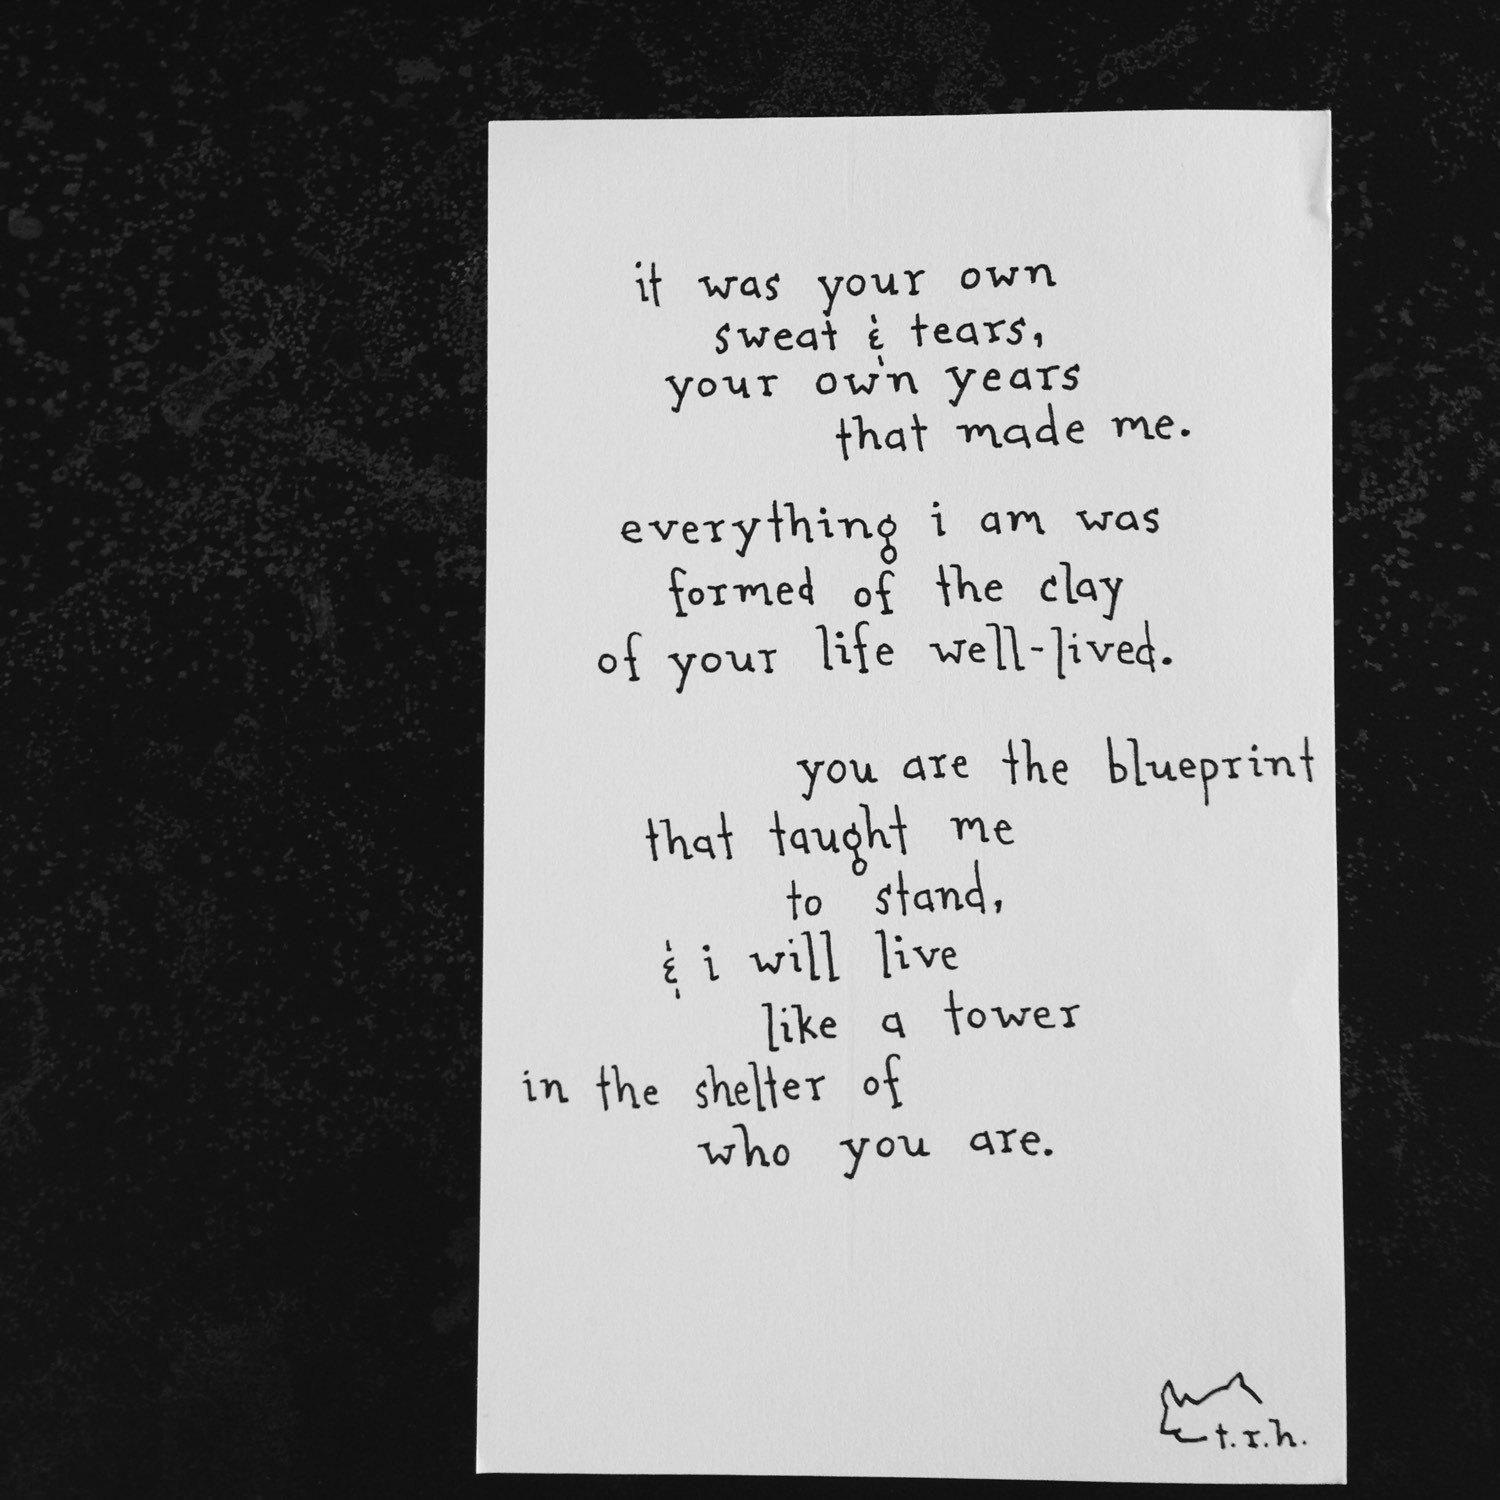 it was your own
sweat & tears,
your own years
that made me.
everything i am was
formed of the clay
of your life well-lived.
you are the blueprint
that taught me
to stand,
& i will live
like a tower
in the shelter of
who you are.
t.r.h.